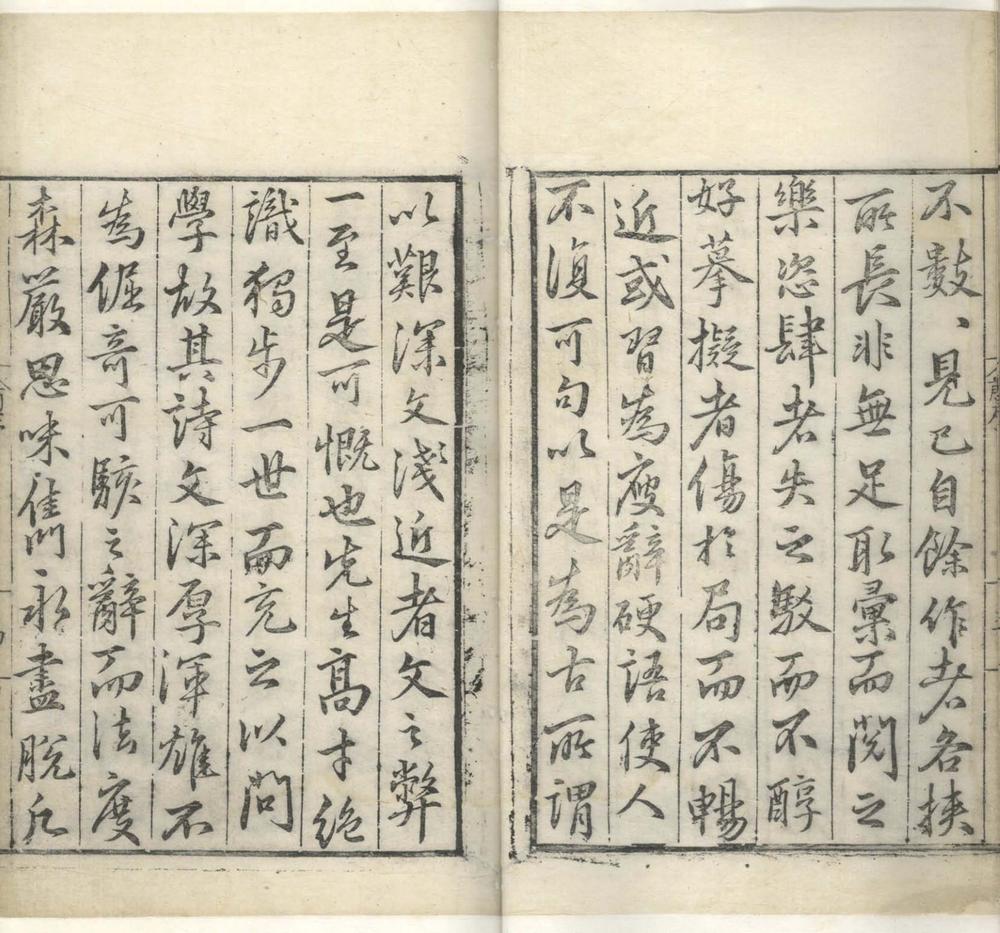 不數數見已自餘作者各挾
所長非無足取彙而閱之
樂恣肆者失之駁而不醇
好摹擬者傷於局而不暢
近或習為廋辭硬語使人
不復可句以是為古所謂
以艱深文淺近者文之弊
一至是可慨也先生高才絶
識獨步一世而充之以問
學故其詩文深厚渾雄不
為倔奇可駭之辭而法度
森嚴思味雋永盡脫凡